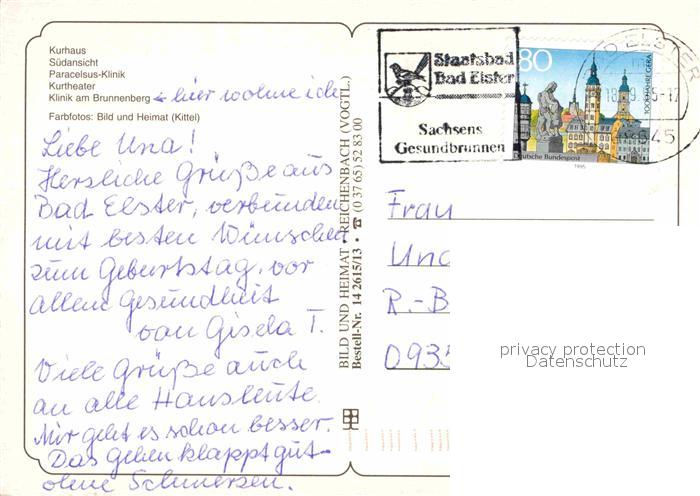 Kurhaus
Südansicht
Paracelsus-Klinik
Kurtheater
Klinik am Brunnenberg ← hier wohne ich
Farbfotos: Bild und Heimat (Kittel)
Liebe Una!
Herzliche Grüße aus
Bad Elster, verbunden
mit besten Wünschen
zum Geburtstag, vor
allem Gesundheit
von Gisela T.
Viele Grüße auch
an alle Hausleute.
Mir geht es schon besser.
Das Gehen klappt gut-
ohne Schmerzen.
BILD UND HEIMAT • REICHENBACH (VOGTL.)
Bestell-Nr. 14 2615/13 • ☎ (0 37 65) 52 83 00
Staatsbad
Bad Elster
Sachsens
Gesundbrunnen
80
1000 JAHRE GERA
Deutsche Bundespost
1995
BAD ELSTER
Frau
Una
R.-B
093
privacy protection
Datenschutz